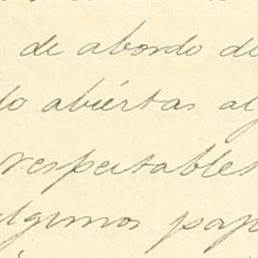 de abordo de
do abiértas al
respectables
algunos pap